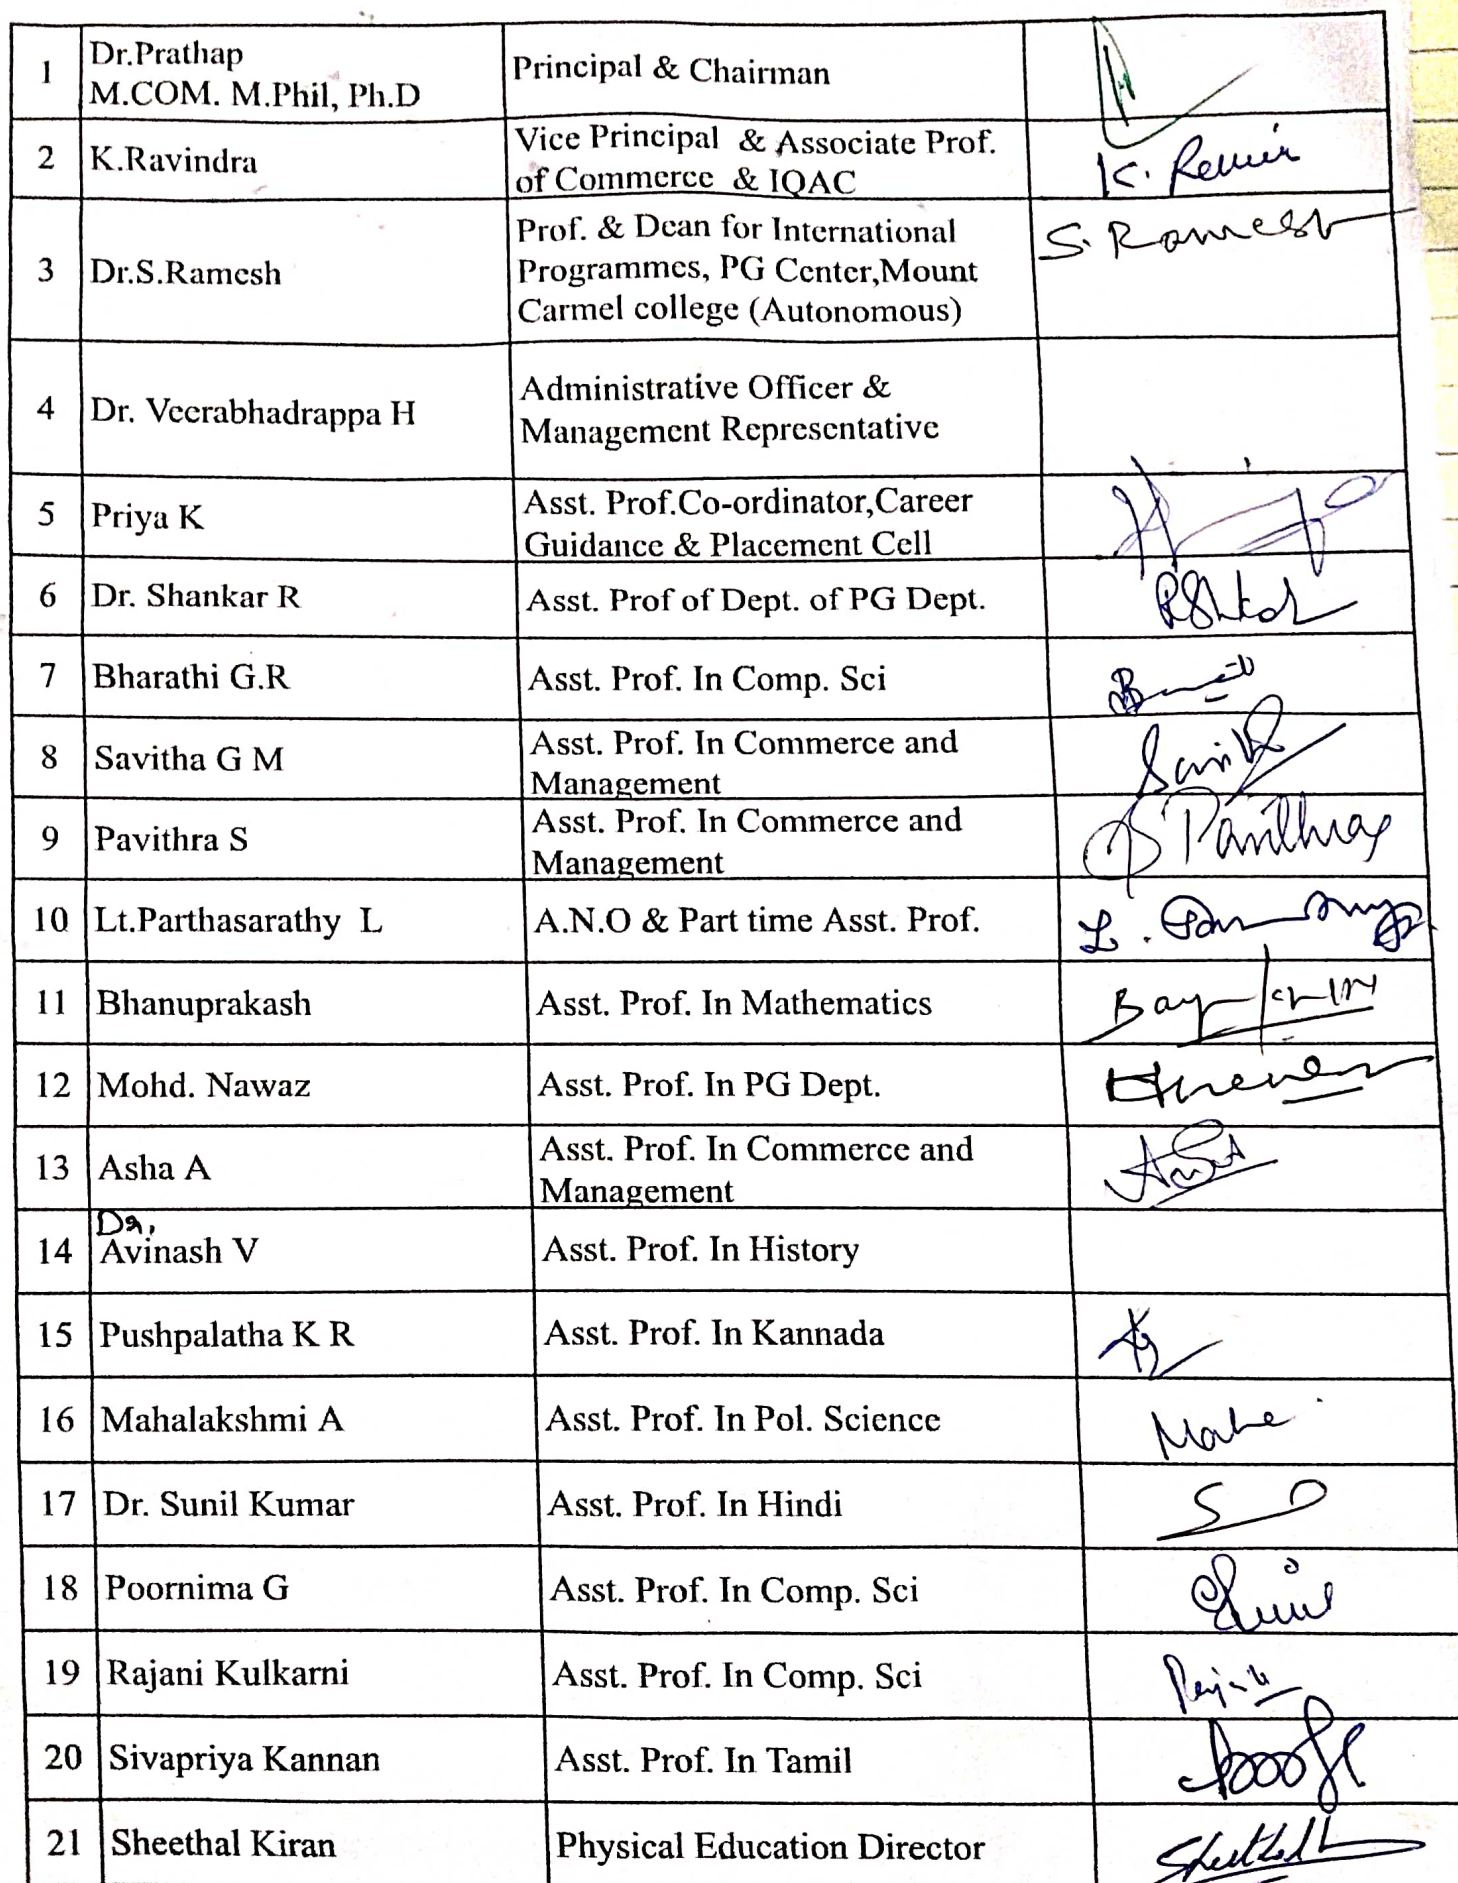 1
Dr.Prathap
M.COM. M.Phil, Ph.D
Principal & Chairman
2
K.Ravindra
Vice Principal & Associate Prof.
of Commerce & IQAC
K.
3
Dr.S.Ramesh
Prof. & Dean for International
Programmes, PG Center,Mount
Carmel college (Autonomous)
S. Ramesh
4
Dr. Veerabhadrappa H
Administrative Officer &
Management Representative
5
Priya K
Asst. Prof.Co-ordinator,Career
Guidance & Placement Cell
6
Dr. Shankar R
Asst. Prof of Dept. of PG Dept.
7
Bharathi G.R
Asst. Prof. In Comp. Sci
8
Savitha G M
Asst. Prof. In Commerce and
Management
9
Pavithra S
Asst. Prof. In Commerce and
Management
10
Lt.Parthasarathy L
A.N.O & Part time Asst. Prof.
L.
11
Bhanuprakash
Asst. Prof. In Mathematics
12
Mohd. Nawaz
Asst. Prof. In PG Dept.
13
Asha A
Asst. Prof. In Commerce and
Management
14
Dr.
Avinash V
Asst. Prof. In History
15
Pushpalatha K R
Asst. Prof. In Kannada
16
Mahalakshmi A
Asst. Prof. In Pol. Science
17
Dr. Sunil Kumar
Asst. Prof. In Hindi
18
Poornima G
Asst. Prof. In Comp. Sci
19
Rajani Kulkarni
Asst. Prof. In Comp. Sci
20
Sivapriya Kannan
Asst. Prof. In Tamil
21
Sheethal Kiran
Physical Education Director